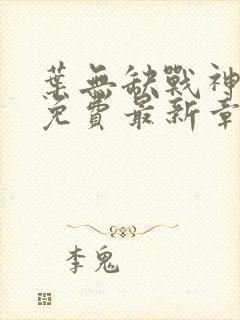 葉無缺戰神
免費最新章
李鬼